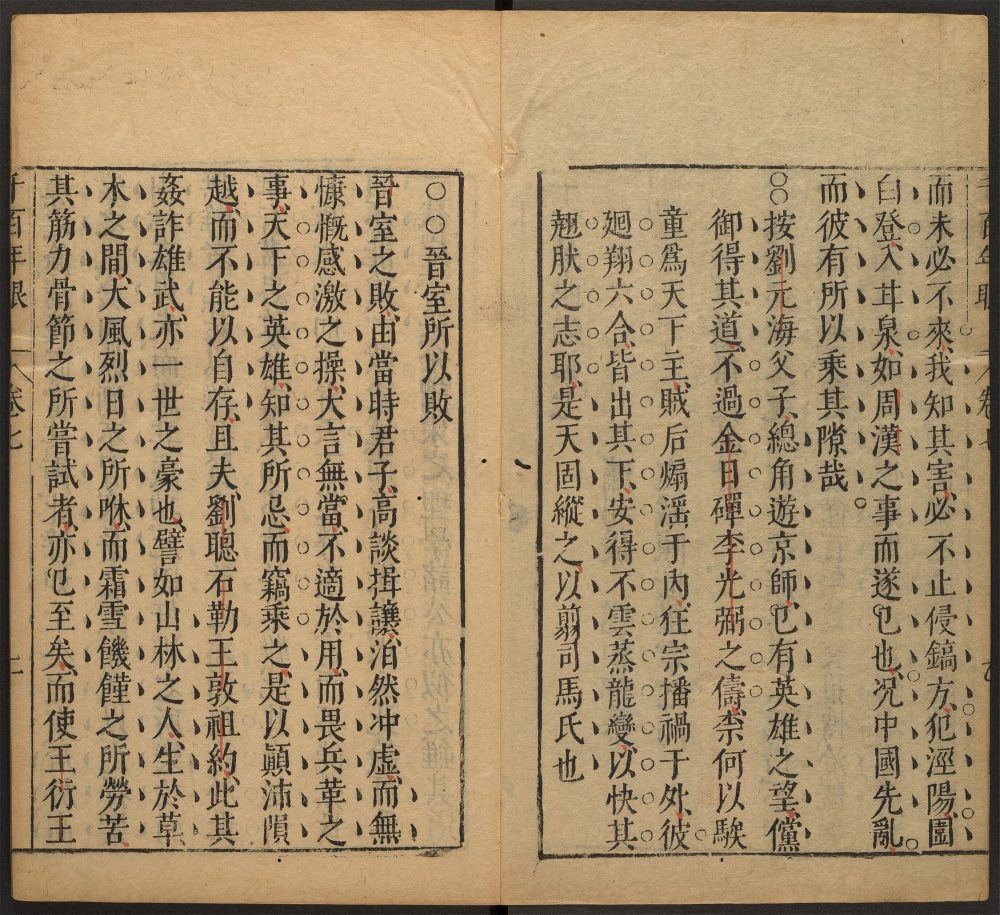 而未必不來、我知其害、必不止侵鎬方、犯涇陽、圍
白登、入甘泉、如周漢之事而遂已也、况中國先亂、
而彼有所以乘其隙哉。
○○按劉元海父子、總角遊京師、已有英雄之望、儻
御得其道、不過金日磾李光弼之儔、柰何以騃
童爲天下主、賊后煽滛于内、狂宗播禍于外、彼
廻翔六合、皆出其下、安得不雲蒸龍變、以快其
翹肰之志耶、是天固縱之、以翦司馬氏也
○○晉室所以敗
晉室之敗、由當時君子、高談揖讓、泊然冲虛、而無
慷慨感激之操、大言無當、不適於用、而畏兵革之
事、天下之英雄、知其所忌、而竊乘之、是以顚沛隕
越、而不能以自存、且夫、劉聰石勒王敦祖約、此其
姦詐雄武、亦一世之豪也、譬如山林之人、生於草
木之間、大風烈日之所咻、而霜雪饑饉之所勞苦、
其筋力骨節之所嘗試者、亦已至矣、而使王衍王
卷七